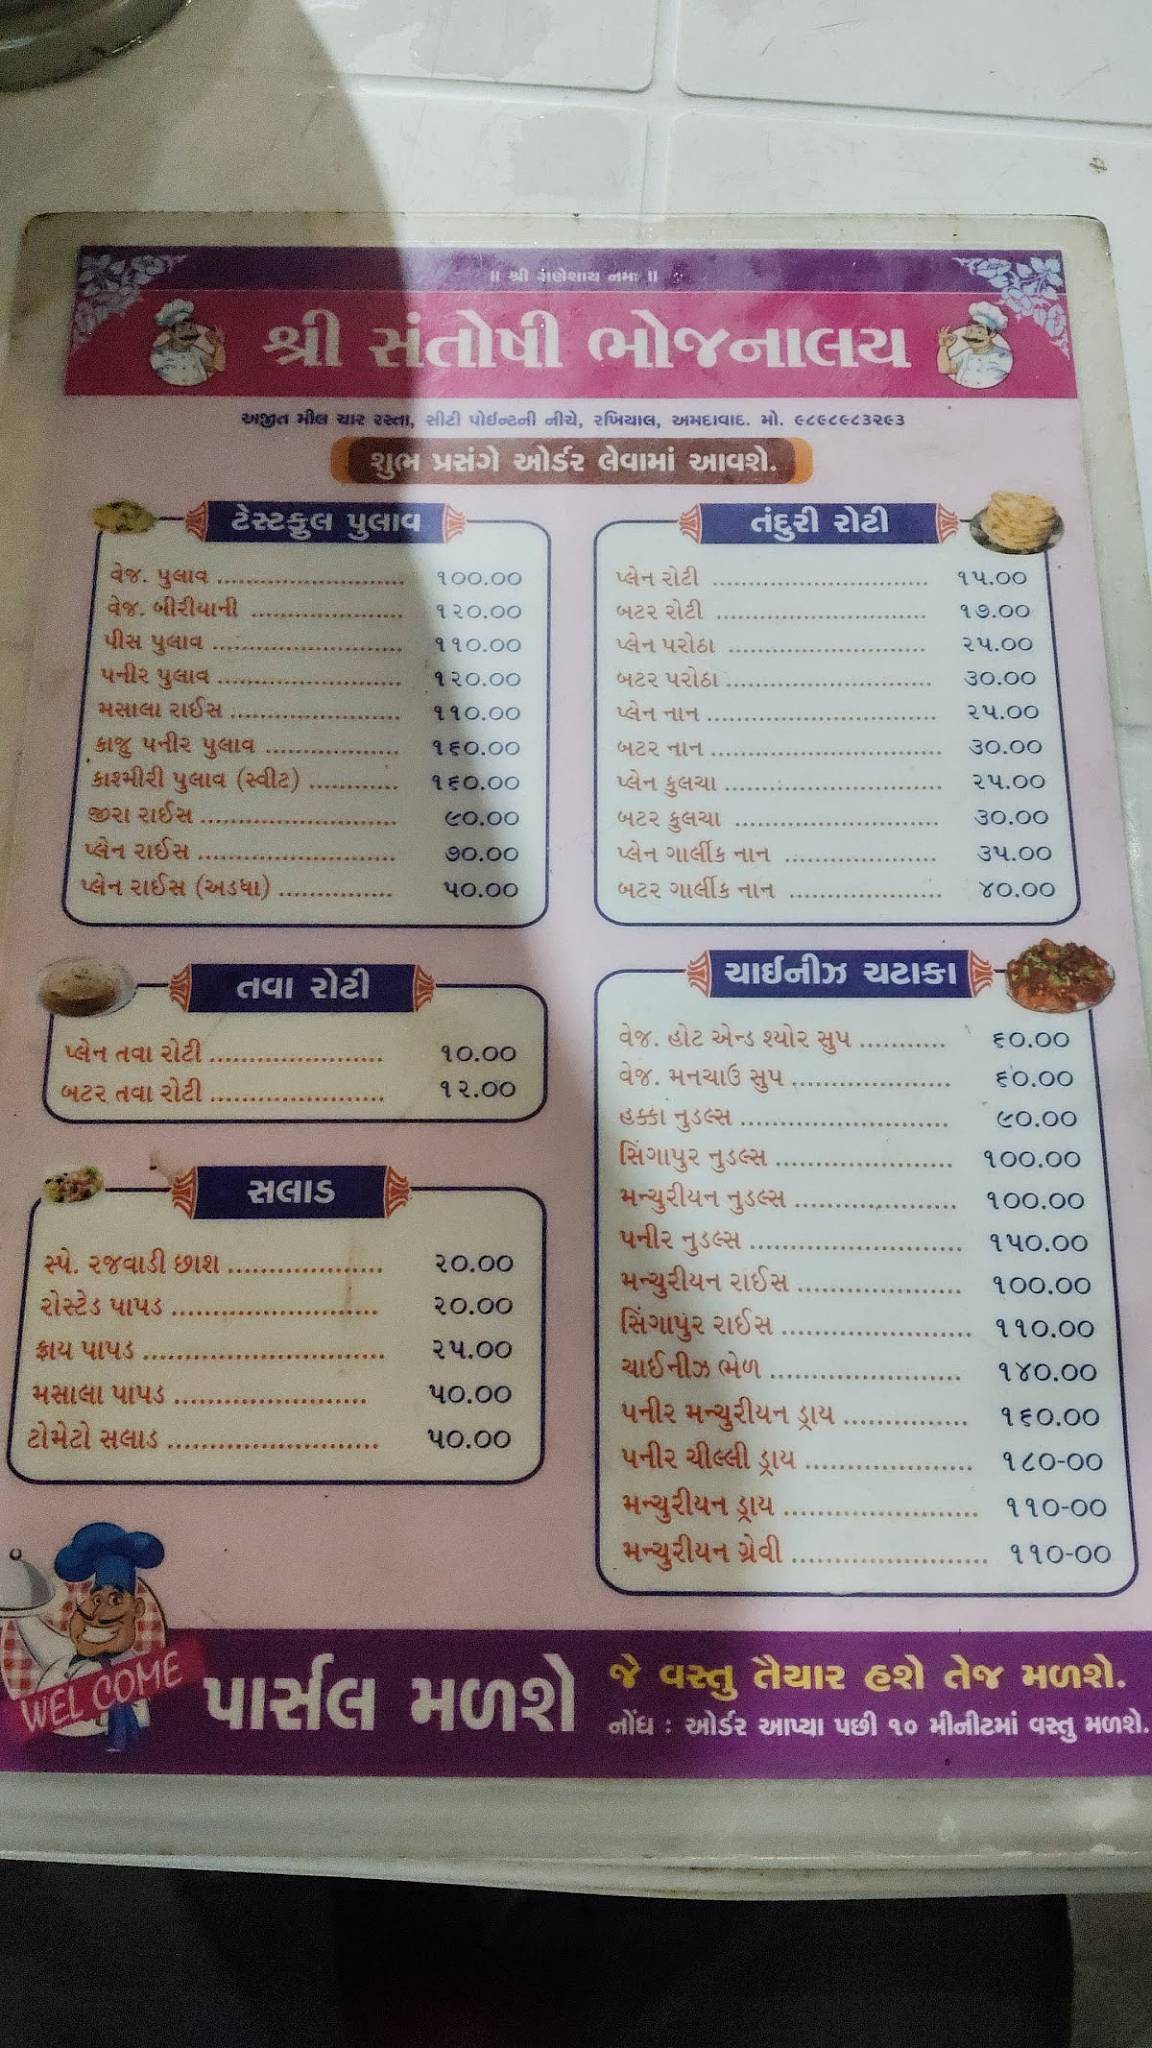 ॥ શ્રી ગણેશાય નમઃ ॥
શ્રી સંતોષી ભોજનાલય
અજીત મીલ ચાર રસ્તા, સીટી પોઈન્ટની નીચે, રખિયાલ, અમદાવાદ. મો. ૯૮૯૮૯૮૩૨૯૩
શુભ પ્રસંગે ઓર્ડર લેવામાં આવશે.
ટેસ્ટફુલ પુલાવ
વેજ. પુલાવ ........................... ૧૦૦.૦૦
વેજ. બીરીયાની ...................... ૧૨૦.૦૦
પીસ પુલાવ ........................... ૧૧૦.૦૦
પનીર પુલાવ .......................... ૧૨૦.૦૦
મસાલા રાઈસ ........................ ૧૧૦.૦૦
કાજુ પનીર પુલાવ .................. ૧૬૦.૦૦
કાશ્મીરી પુલાવ (સ્વીટ) ............ ૧૬૦.૦૦
જીરા રાઈસ ........................... ૯૦.૦૦
પ્લેન રાઈસ ........................... ૭૦.૦૦
પ્લેન રાઈસ (અડધા) ................ ૫૦.૦૦
તવા રોટી
પ્લેન તવા રોટી ...................... ૧૦.૦૦
બટર તવા રોટી ...................... ૧૨.૦૦
સલાડ
સ્પે. રજવાડી છાશ .................... ૨૦.૦૦
રોસ્ટેડ પાપડ .......................... ૨૦.૦૦
ફ્રાય પાપડ ............................. ૨૫.૦૦
મસાલા પાપડ ......................... ૫૦.૦૦
ટોમેટો સલાડ .......................... ૫૦.૦૦
તંદુરી રોટી
પ્લેન રોટી ............................. ૧૫.૦૦
બટર રોટી ............................. ૧૭.૦૦
પ્લેન પરોઠા .......................... ૨૫.૦૦
બટર પરોઠા ........................... ૩૦.૦૦
પ્લેન નાન ............................. ૨૫.૦૦
બટર નાન ............................. ૩૦.૦૦
પ્લેન કુલચા ........................... ૨૫.૦૦
બટર કુલચા .......................... ૩૦.૦૦
પ્લેન ગાર્લીક નાન .................. ૩૫.૦૦
બટર ગાર્લીક નાન .................. ૪૦.૦૦
ચાઈનીઝ ચટાકા
વેજ. હોટ એન્ડ શ્યોર સુપ ........... ૬૦.૦૦
વેજ. મનચાઉ સુપ .................... ૬૦.૦૦
હક્કા નુડલ્સ ........................... ૯૦.૦૦
સિંગાપુર નુડલ્સ ...................... ૧૦૦.૦૦
મન્ચુરીયન નુડલ્સ .................... ૧૦૦.૦૦
પનીર નુડલ્સ .......................... ૧૫૦.૦૦
મન્ચુરીયન રાઈસ .................... ૧૦૦.૦૦
સિંગાપુર રાઈસ ....................... ૧૧૦.૦૦
ચાઈનીઝ ભેળ ........................ ૧૪૦.૦૦
પનીર મન્ચુરીયન ડ્રાય ............... ૧૬૦.૦૦
પનીર ચીલ્લી ડ્રાય .................... ૧૮૦-૦૦
મન્ચુરીયન ડ્રાય ........................ ૧૧૦-૦૦
મન્ચુરીયન ગ્રેવી ........................ ૧૧૦-૦૦
WELCOME
પાર્સલ મળશે
જે વસ્તુ તૈયાર હશે તેજ મળશે.
નોંધ : ઓર્ડર આપ્યા પછી ૧૦ મીનીટમાં વસ્તુ મળશે.